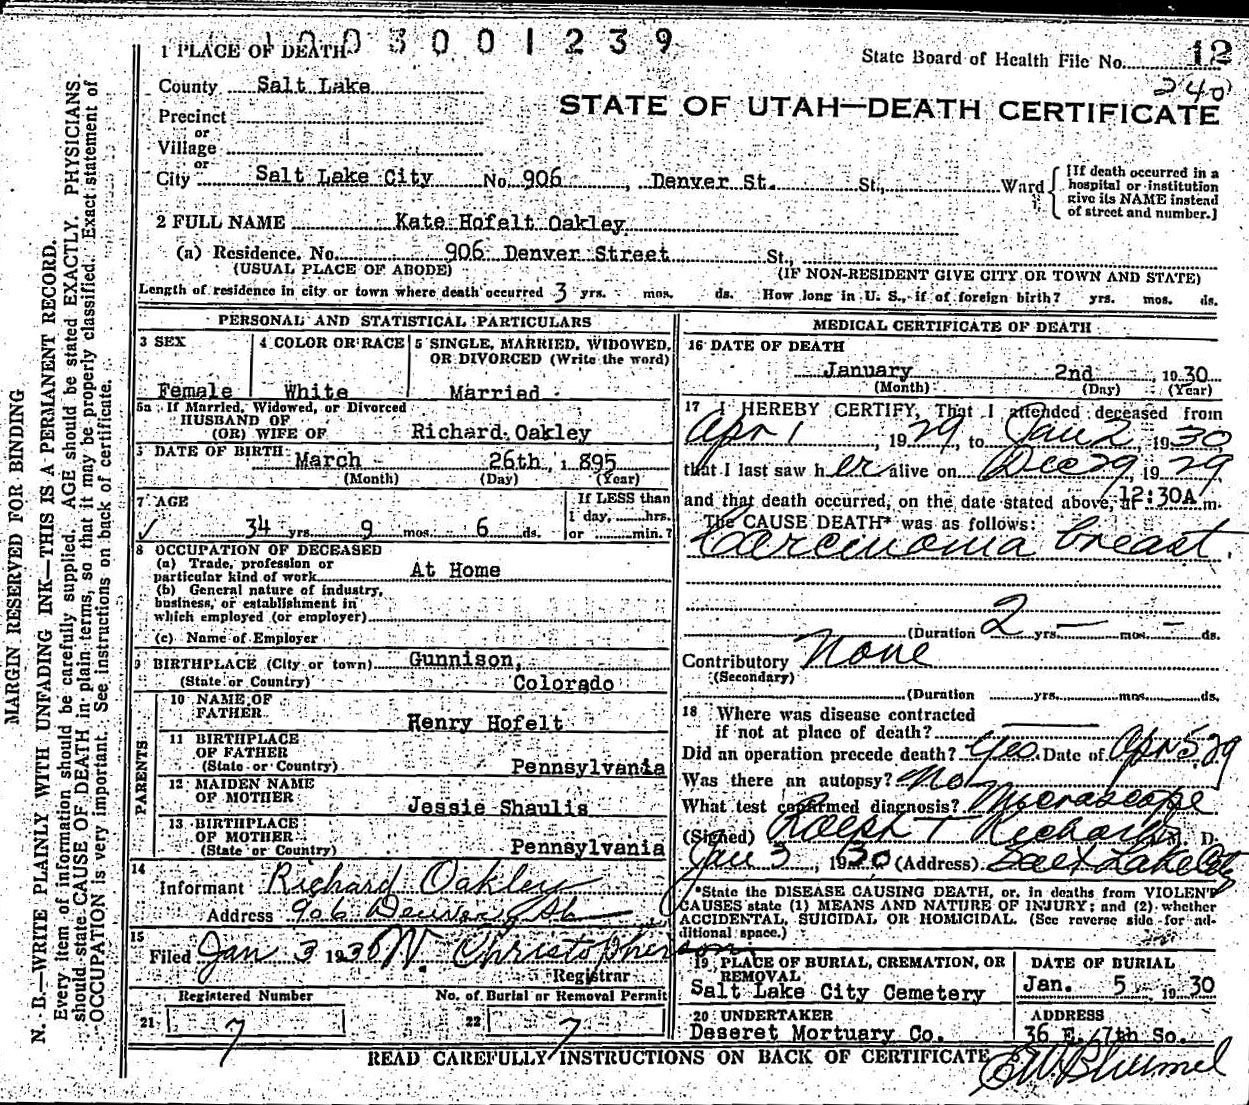 1003001239
1 PLACE OF DEATH
State Board of Health File No. 12
240
County Salt Lake
STATE OF UTAH—DEATH CERTIFICATE
Precinct
or
Village
or
City Salt Lake City No. 906, Denver St. St., Ward
[If death occurred in a
hospital or institution
give its NAME instead
of street and number.]
2 FULL NAME Kate Hofelt Oakley
(a) Residence. No. 906 Denver Street St.,
(USUAL PLACE OF ABODE) (IF NON-RESIDENT GIVE CITY OR TOWN AND STATE)
Length of residence in city or town where death occurred 3 yrs. mos. ds. How long in U. S., if of foreign birth? yrs. mos. ds.
PERSONAL AND STATISTICAL PARTICULARS
3 SEX
Female
4 COLOR OR RACE
White
5 SINGLE, MARRIED, WIDOWED,
OR DIVORCED (Write the word)
Married
5a If Married, Widowed, or Divorced
HUSBAND OF
(OR) WIFE OF Richard Oakley
DATE OF BIRTH March 26th, 1895
(Month) (Day) (Year)
7 AGE
34 yrs. 9 mos. 6 ds.
If LESS than
1 day, hrs.
or min.?
8 OCCUPATION OF DECEASED
(a) Trade, profession or
particular kind of work At Home
(b) General nature of industry,
business, or establishment in
which employed (or employer)
(c) Name of Employer
9 BIRTHPLACE (City or town) Gunnison,
(State or Country) Colorado
PARENTS
10 NAME OF
FATHER Henry Hofelt
11 BIRTHPLACE
OF FATHER
(State or Country) Pennsylvania
12 MAIDEN NAME
OF MOTHER Jessie Shaulis
13 BIRTHPLACE
OF MOTHER
(State or Country) Pennsylvania
14
Informant Richard Oakley
Address 906 Denver St
15
Filed Jan 3 1930 W. Christopherson
Registrar
Registered Number No. of Burial or Removal Permit
21 7 22 7
MEDICAL CERTIFICATE OF DEATH
16 DATE OF DEATH
January 2nd, 1930
(Month) (Day) (Year)
17 I HEREBY CERTIFY, That I attended deceased from
Apr 1, 1929, to Jan 2, 1930
that I last saw her alive on Dec 29, 1929
and that death occurred, on the date stated above, at 12:30A m.
The CAUSE DEATH* was as follows:
Carcinoma breast.
(Duration 2 yrs. — mos. — ds.
Contributory None
(Secondary)
(Duration yrs. mos. ds.
18 Where was disease contracted
if not at place of death?
Did an operation precede death? Yes. Date of Apr 5, 29
Was there an autopsy? No
What test confirmed diagnosis? Microscope
(Signed) Ralph T Richards M. D.
Jan 3, 1930 (Address) Salt Lake City
*State the DISEASE CAUSING DEATH, or, in deaths from VIOLENT
CAUSES state (1) MEANS AND NATURE OF INJURY; and (2) whether
ACCIDENTAL, SUICIDAL OR HOMICIDAL. (See reverse side for ad-
ditional space.)
19 PLACE OF BURIAL, CREMATION, OR
REMOVAL
Salt Lake City Cemetery
DATE OF BURIAL
Jan. 5 1930
20 UNDERTAKER
Deseret Mortuary Co.
ADDRESS
36 E. 7th So.
READ CAREFULLY INSTRUCTIONS ON BACK OF CERTIFICATE
MARGIN RESERVED FOR BINDING
N. B.—WRITE PLAINLY WITH UNFADING INK—THIS IS A PERMANENT RECORD.
Every item of information should be carefully supplied. AGE should be stated EXACTLY. PHYSICIANS
should state CAUSE OF DEATH in plain terms, so that it may be properly classified. Exact statement of
OCCUPATION is very important. See instructions on back of certificate.